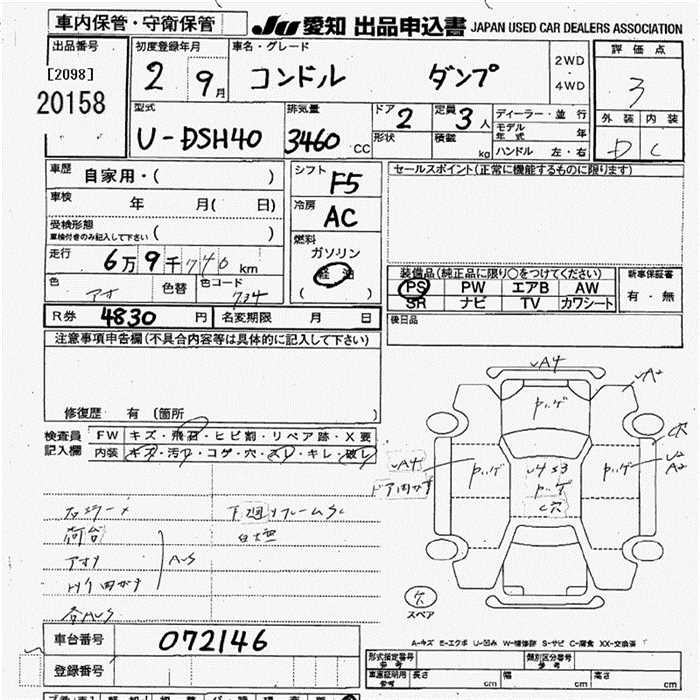 車内保管・守衛保管
JU 愛知 出品申込書 JAPAN USED CAR DEALERS ASSOCIATION
出品番号 初度登録年月 車名・グレード 評価点
[2098] 2 9月 コンドル ダンプ 2WD・4WD 3
20158
型式 排気量 ドア 2 定員 3人 ディーラー・並行 外装 内装
U-DSH40 3460 CC 形状 積載 kg モデル年式 年 D C
ハンドル 左・右
車歴 自家用・( ) シフト F5 セールスポイント(正常に機能するものに限ります)
車検 年 月( 日) 冷房 AC
受検形態 車検付きのみ記入して下さい ( ) 燃料
走行 6万9千740km ガソリン
軽油
( )
装備品(純正品に限り○をつけてください) 新車保証書
色 アオ 色替 色コード 734 PS PW エアB AW 有・無
SR ナビ TV カワシート
R券 4830円 名変期限 月 日 後日品
注意事項申告欄(不具合内容等は具体的に記入して下さい)
修復歴 有(箇所 )
検査員記入欄 FW キズ・飛石・ヒビ割・リペア跡・X要
内装 キズ・汚れ・コゲ・穴・スレ・キレ・破レ
A4
A4
ドア
穴
スペア
A-キズ E-エクボ U-凹み W-補修跡 S-サビ C-腐食 XX-交換済
車台番号 072146
登録番号
形式指定番号 参考 類別区分番号 参考
車庫証明用 参考 長さ cm 幅 cm 高さ cm